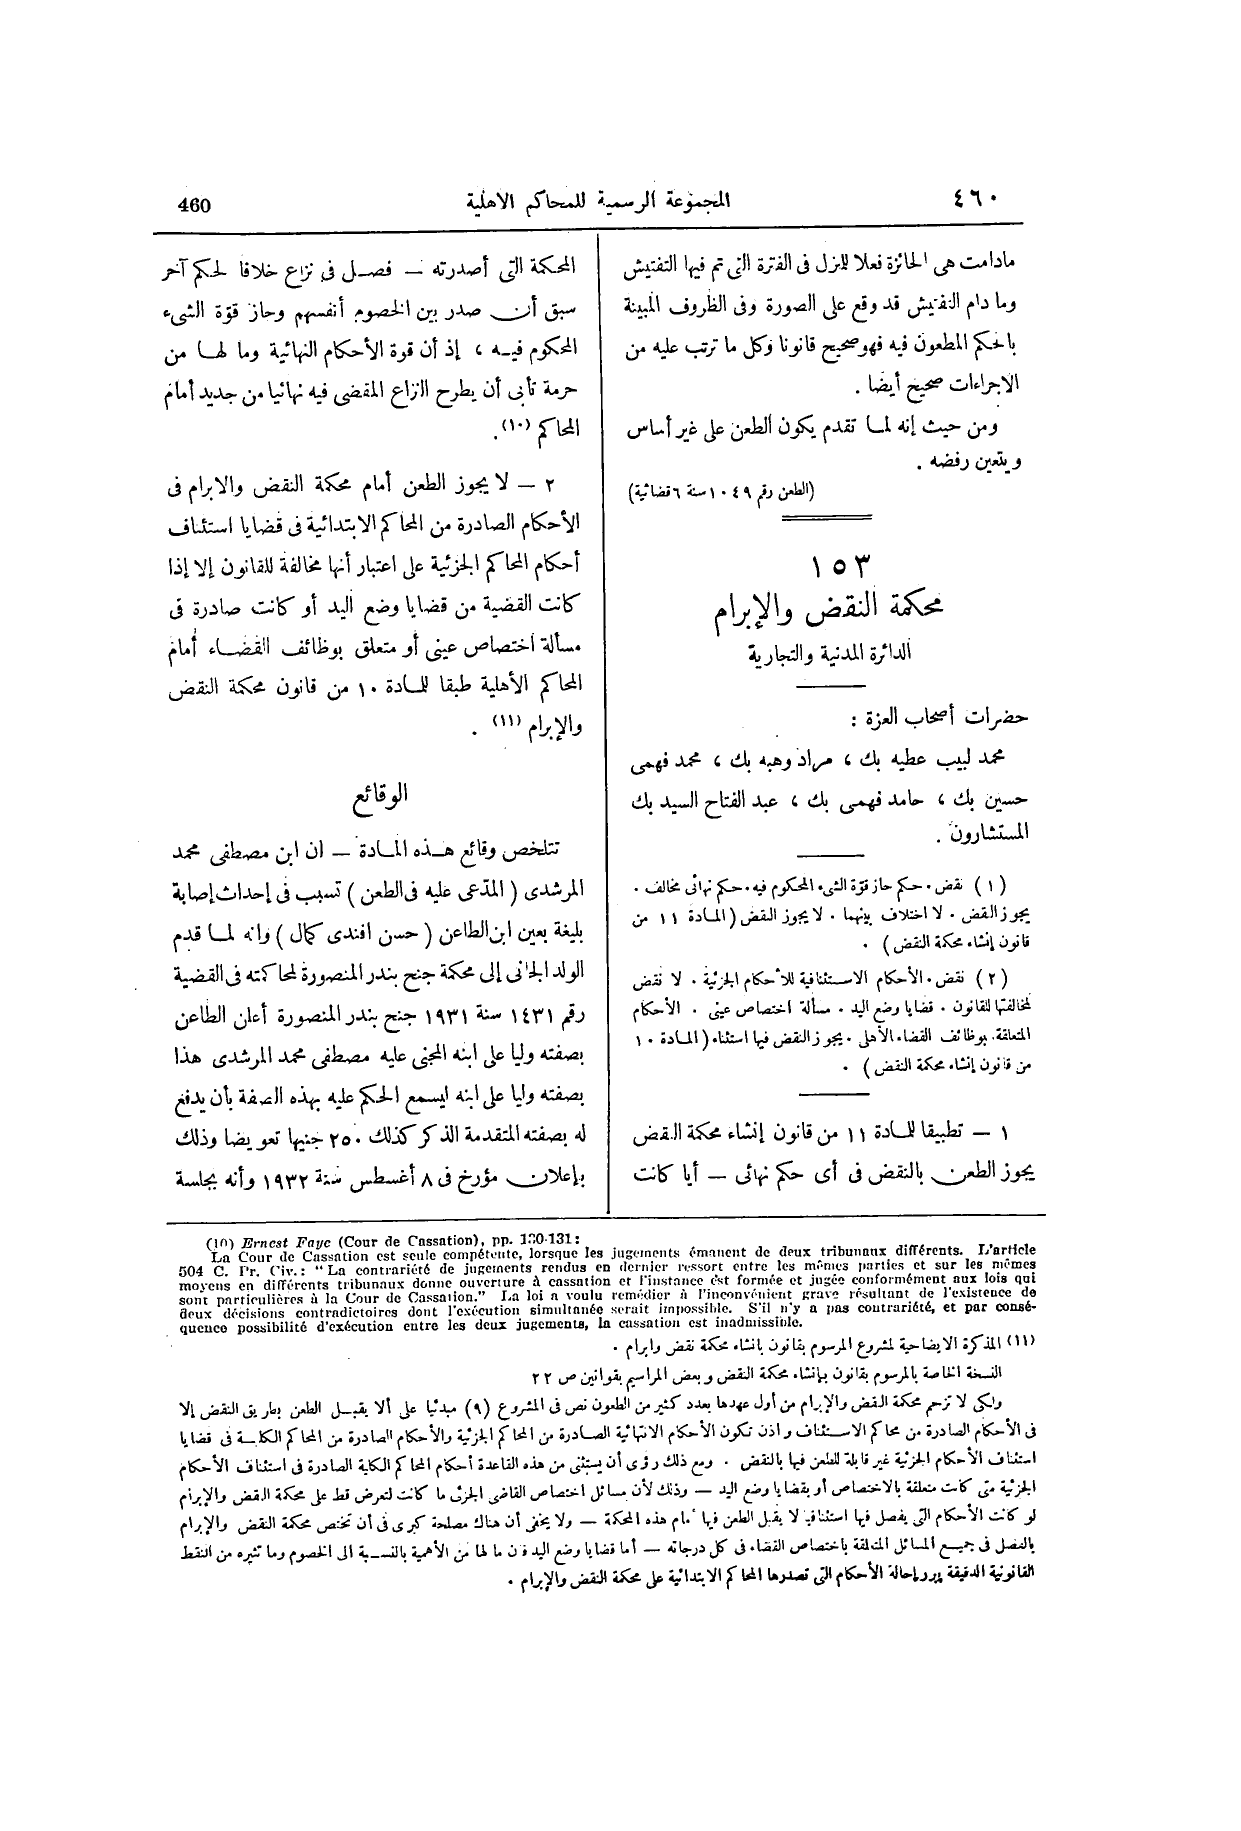 ٤٦٠
المجموعة الرسمية للمحاكم الاهلية
460
مادامت هى الحائزة فعلا للمنزل فى الفترة التى تم فيها التفتيش
وما دام التفتيش قد وقع على الصورة وفى الظروف المبينة
بالحكم المطعون فيه فهو صحيح قانونا وكل ما ترتب عليه من
الاجراءات صحيح أيضا .
ومن حيث إنه لما تقدم يكون الطعن على غير أساس
ويتعين رفضه .
(الطعن رقم ١٠٤٩ سنة ٦ قضائية)
١٥٣
محكمة النقض والإبرام
الدائرة المدنية والتجارية
حضرات أصحاب العزة :
محمد لبيب عطيه بك ، مراد وهبه بك ، محمد فهمى
حسين بك ، حامد فهمى بك ، عبد الفتاح السيد بك
المستشارون .
(١) نقض . حكم حاز قوّة الشىء المحكوم فيه . حكم نهائى مخالف .
يجوز النقض . لا اختلاف بينهما . لا يجوز النقض (المادة ١١ من
قانون إنشاء محكمة النقض) .
(٢) نقض . الأحكام الاستئنافية للأحكام الجزئية . لا نقض
لمخالفتها للقانون . قضايا وضع اليد . مسألة اختصاص عينى . الأحكام
المتعلقة بوظائف القضاء الأهلى . يجوز النقض فيها استثناء (المادة ١٠
من قانون إنشاء محكمة النقض) .
١ — تطبيقا للمادة ١١ من قانون إنشاء محكمة النقض
يجوز الطعن بالنقض فى أى حكم نهائى — أيا كانت
المحكمة التى أصدرته — فصل فى نزاع خلافا لحكم آخر
سبق أن صدر بين الخصوم أنفسهم وحاز قوّة الشىء
المحكوم فيه ، إذ أن قوة الأحكام النهائية وما لها من
حرمة تأبى أن يطرح النزاع المقضى فيه نهائيا من جديد أمام
المحاكم (١٠).
٢ — لا يجوز الطعن أمام محكمة النقض والابرام فى
الأحكام الصادرة من المحاكم الابتدائية فى قضايا استئناف
أحكام المحاكم الجزئية على اعتبار أنها مخالفة للقانون إلا إذا
كانت القضية من قضايا وضع اليد أو كانت صادرة فى
مسألة اختصاص عينى أو متعلق بوظائف القضاء أمام
المحاكم الأهلية طبقا للمادة ١٠ من قانون محكمة النقض
والإبرام (١١) .
الوقائع
تتلخص وقائع هذه المادة — ان ابن مصطفى محمد
المرشدى (المدّعى عليه فى الطعن) تسبب فى إحداث إصابة
بليغة بعين ابن الطاعن (حسن افندى كمال) وانه لما قدم
الولد الجانى إلى محكمة جنح بندر المنصورة لمحاكمته فى القضية
رقم ١٤٣١ سنة ١٩٣١ جنح بندر المنصورة أعلن الطاعن
بصفته وليا على ابنه المجنى عليه مصطفى محمد المرشدى هذا
بصفته وليا على ابنه ليسمع الحكم عليه بهذه الصفة بأن يدفع
له بصفته المتقدمة الذكر كذلك ٢٥٠ جنيها تعويضا وذلك
بإعلان مؤرخ فى ٨ أغسطس سنة ١٩٣٢ وأنه بجلسة
(10) Ernest Faye (Cour de Cassation), pp. 130-131:
La Cour de Cassation est seule compétente, lorsque les jugements émanent de deux tribunaux différents. L'article
504 C. Pr. Civ.: "La contrariété de jugements rendus en dernier ressort entre les mêmes parties et sur les mêmes
moyens en différents tribunaux donne ouverture à cassation et l'instance est formée et jugée conformément aux lois qui
sont particulières à la Cour de Cassation." La loi a voulu remédier à l'inconvénient grave résultant de l'existence de
deux décisions contradictoires dont l'exécution simultanée serait impossible. S'il n'y a pas contrariété, et par consé-
quence possibilité d'exécution entre les deux jugements, la cassation est inadmissible.
(١١) المذكرة الايضاحية لمشروع المرسوم بقانون بانشاء محكمة نقض وابرام .
النسخة الخاصة بالمرسوم بقانون بإنشاء محكمة النقض وبعض المراسيم بقوانين ص ٢٢
ولكى لا تزحم محكمة النقض والإبرام من أول عهدها بعدد كثير من الطعون نص فى المشروع (٩) مبدئيا على ألا يقبل الطعن بطريق النقض إلا
فى الأحكام الصادرة من محاكم الاستئناف واذن تكون الأحكام الانتهائية الصادرة من المحاكم الجزئية والأحكام الصادرة من المحاكم الكلية فى قضايا
استئناف الأحكام الجزئية غير قابلة للطعن فيها بالنقض . ومع ذلك رؤى أن يستثنى من هذه القاعدة أحكام المحاكم الكلية الصادرة فى استئناف الأحكام
الجزئية متى كانت متعلقة بالاختصاص أو بقضايا وضع اليد — وذلك لأن مسائل اختصاص القاضى الجزئى ما كانت لتعرض قط على محكمة النقض والإبرام
لو كانت الأحكام التى يفصل فيها استئنافيا لا يقبل الطعن فيها أمام هذه المحكمة — ولا يخفى أن هناك مصلحة كبرى فى أن تختص محكمة النقض والإبرام
بالفصل فى جميع المسائل المتعلقة باختصاص القضاء فى كل درجاته — أما قضايا وضع اليد فان ما لها من الأهمية بالنسبة الى الخصوم وما تثيره من النقط
القانونية الدقيقة يبرر إحالة الأحكام التى تصدرها المحاكم الابتدائية على محكمة النقض والإبرام .